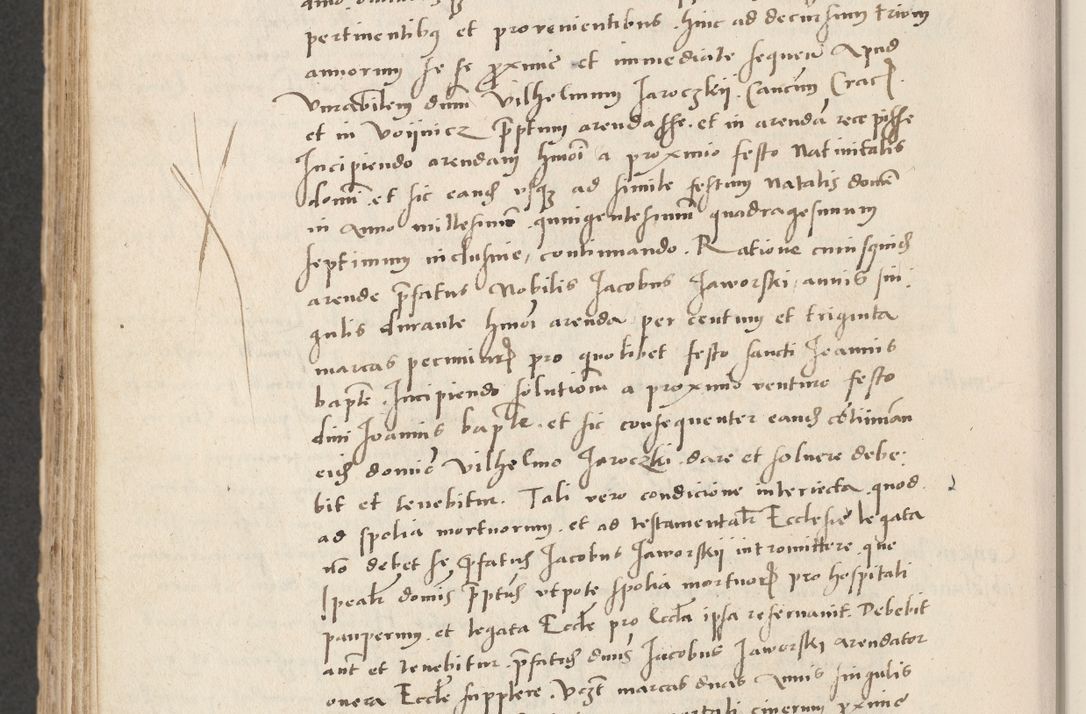 pertinentibus et provenientibus hinc ad decursum trium
annorum se se proxime et immediate sequen Apud
Vnrabilem dum Vilhelmum Jaroczkij Cancum Crac
et in Voijnicz prptum arendasse et in arenda recepisse
Incipiendo arendam hmoi a proximo festo Natiuitatis
domi et sic eand vsque ad simile festum Natalis domi
in Anno millesimo quingentesimum quadragesimum
septimum inclusiue, continuando. Ratione cuiusquid
arende prfatus Nobilis Jacobus Jaworski, annis sin
gulis durante hmoi arenda per centum et triginta
marcas pecuniar pro quolibet festo sancti Joannis
bapte. Incipiendo solutiom a proximo venturo festo
diui Joannis bapte et sic consequenter eand
eid domio Vilhelmo Jaroczki dare et soluere debe:
bit et tenebitur. Tali vero condicione interiecta quod
ad spolia mortuorum et ad testamentalr Ecclesie legata
no debet se prfatus Jacobus Jaworskij intromittere que
spealr domis prptus vtpote spolia mortuor pro hospitali
pauperum et legata Eccle pro Eccla ipsa reseruauit. Debebit
aut et tenebitur prfatus dnus Jacobus Jaworski arendator
onera Eccle supplere. Vczt marcas duas Annis singulis
cinerum pxime